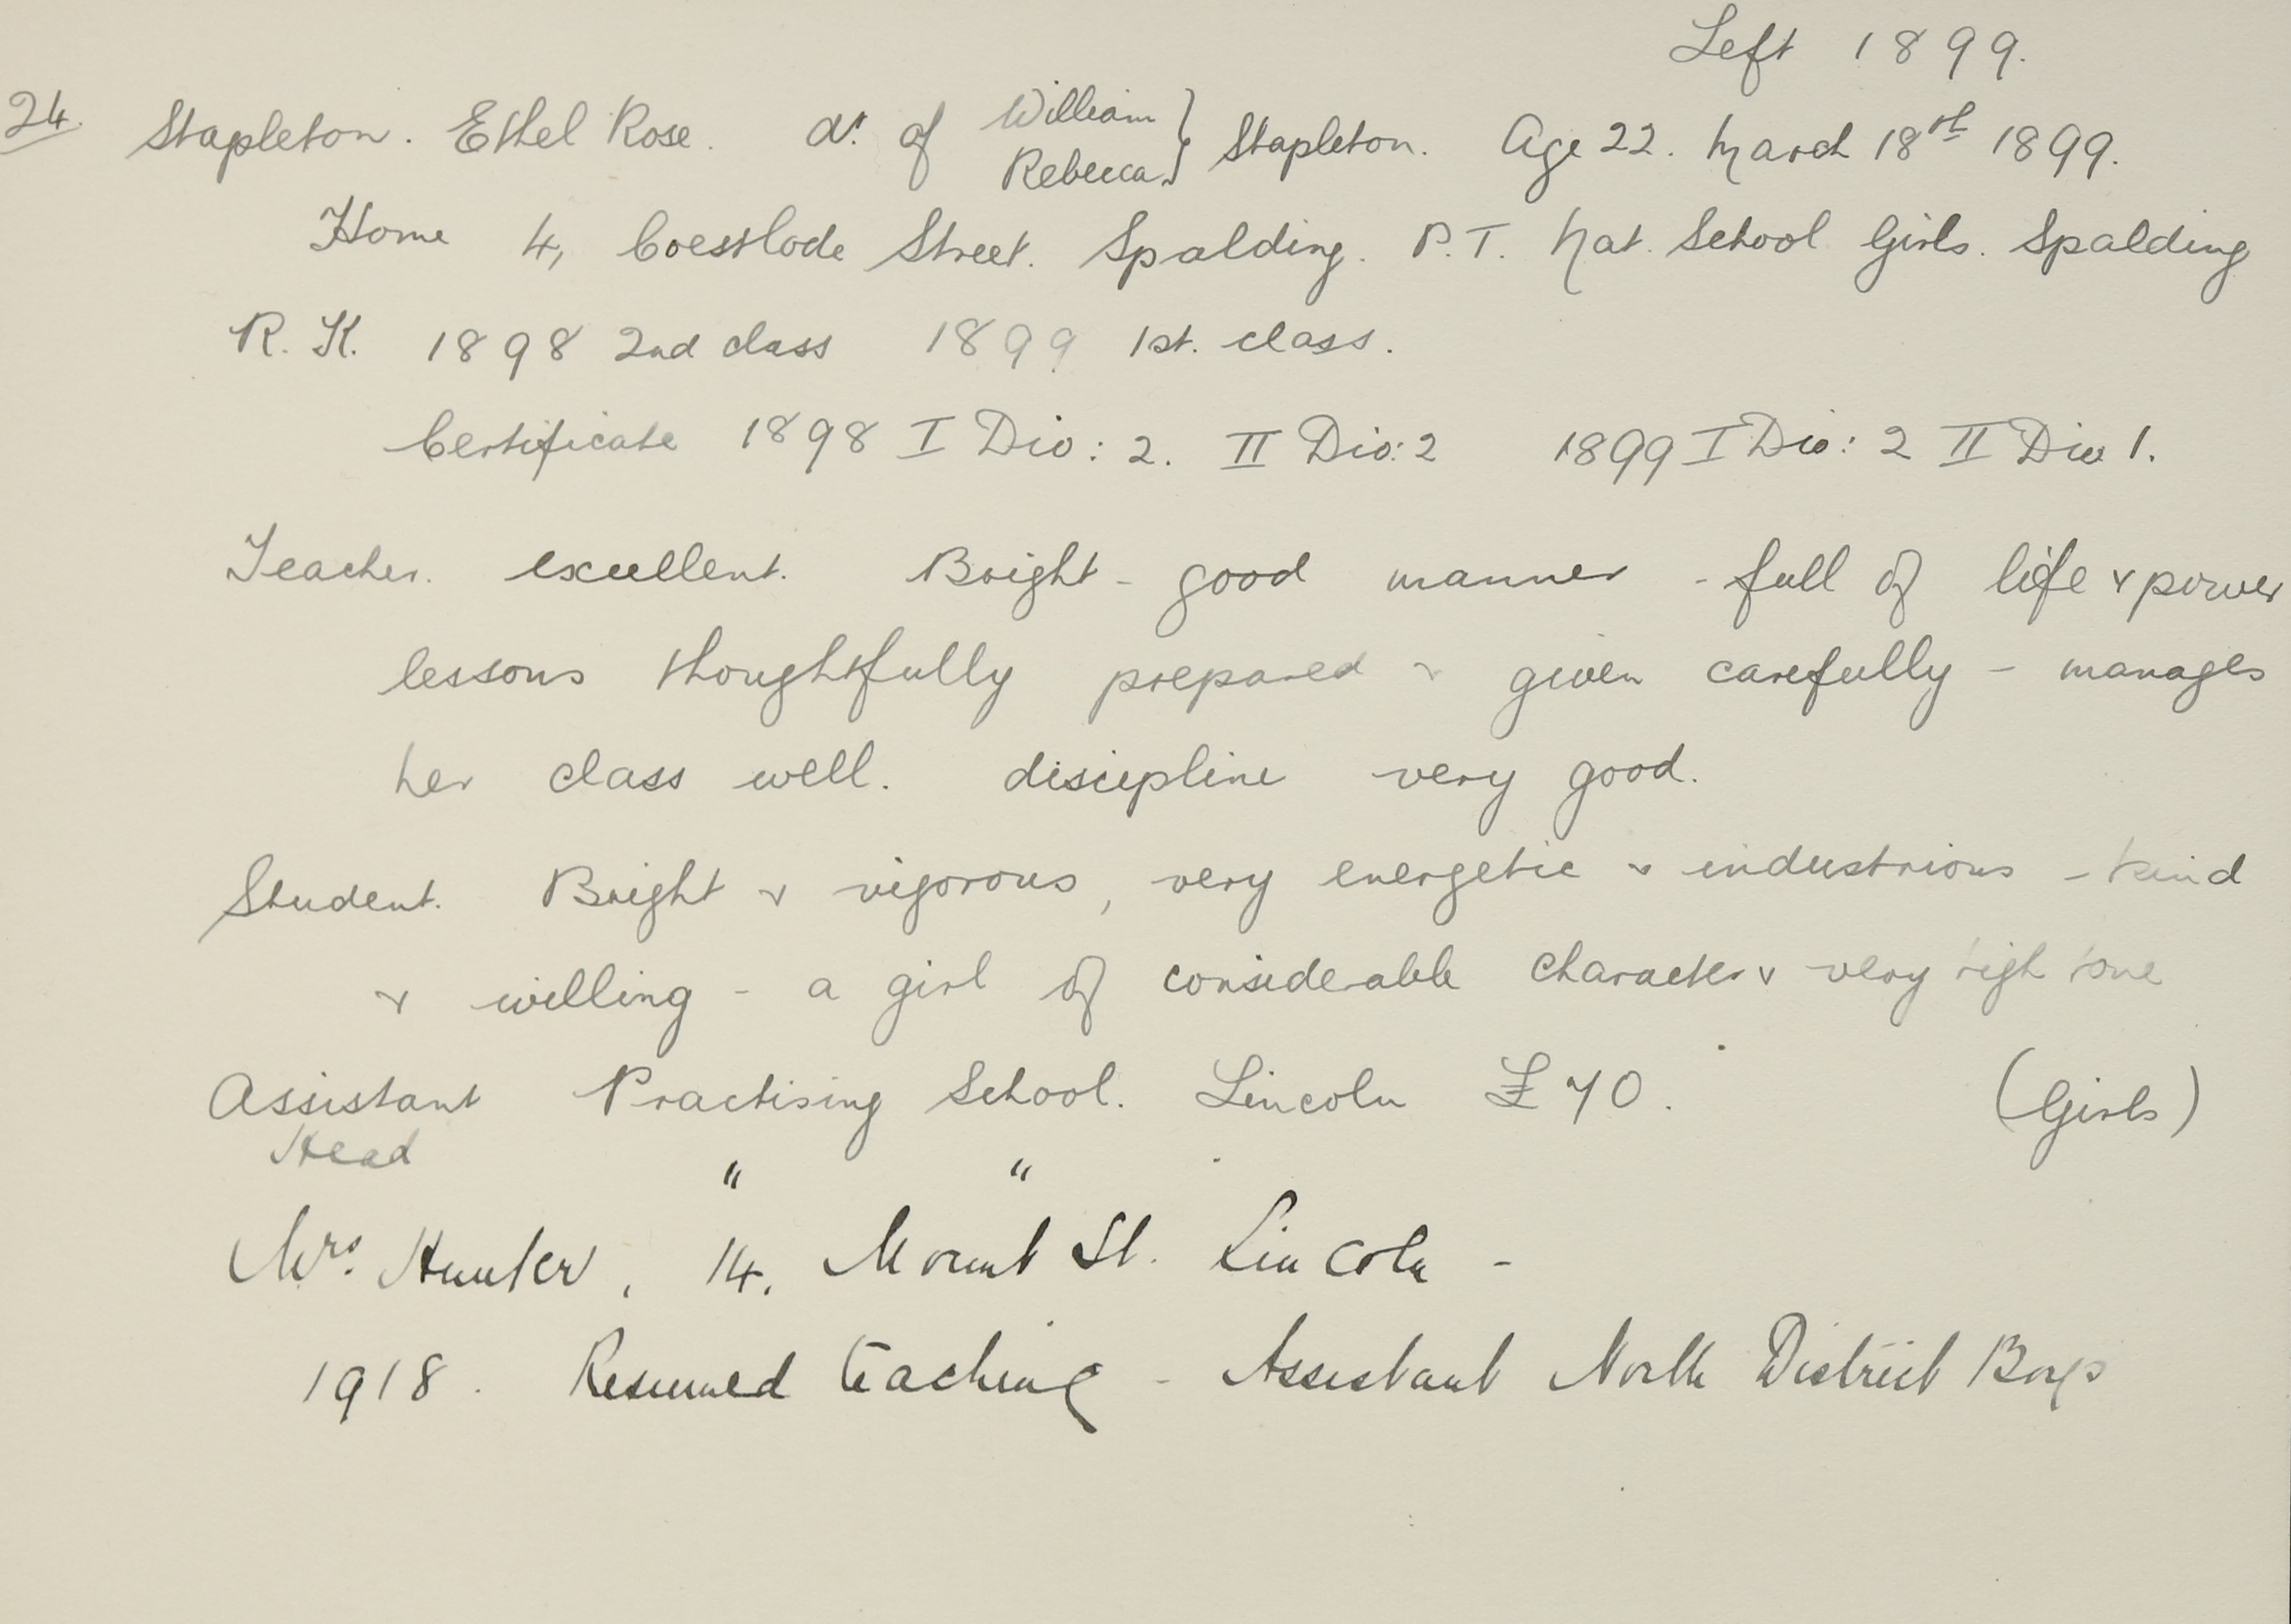 Left 1899.
24. Stapleton. Ethel Rose. dr. of William Rebecca } Stapleton. Age 22. March 18th 1899.
Home 4, Coesslode Street. Spalding. P.T. Nat. School Girls. Spalding
R. K. 1898 2nd class 1899 1st. class.
Certificate 1898 I Div: 2. II Div: 2 1899 I Div: 2 II Div 1.
Teacher. excellent. Bright - good manner - full of life & power
lessons thoughtfully prepared & given carefully - manages
her class well. discipline very good.
Student. Bright & vigorous, very energetic & industrious - kind
& willing - a girl of considerable character & very high tone
Assistant Practising School. Lincoln £70. (Girls)
Head " "
Mrs. Hunter, 14, Mount St. Lincoln -
1918. Resumed teaching - Assistant North District Boys